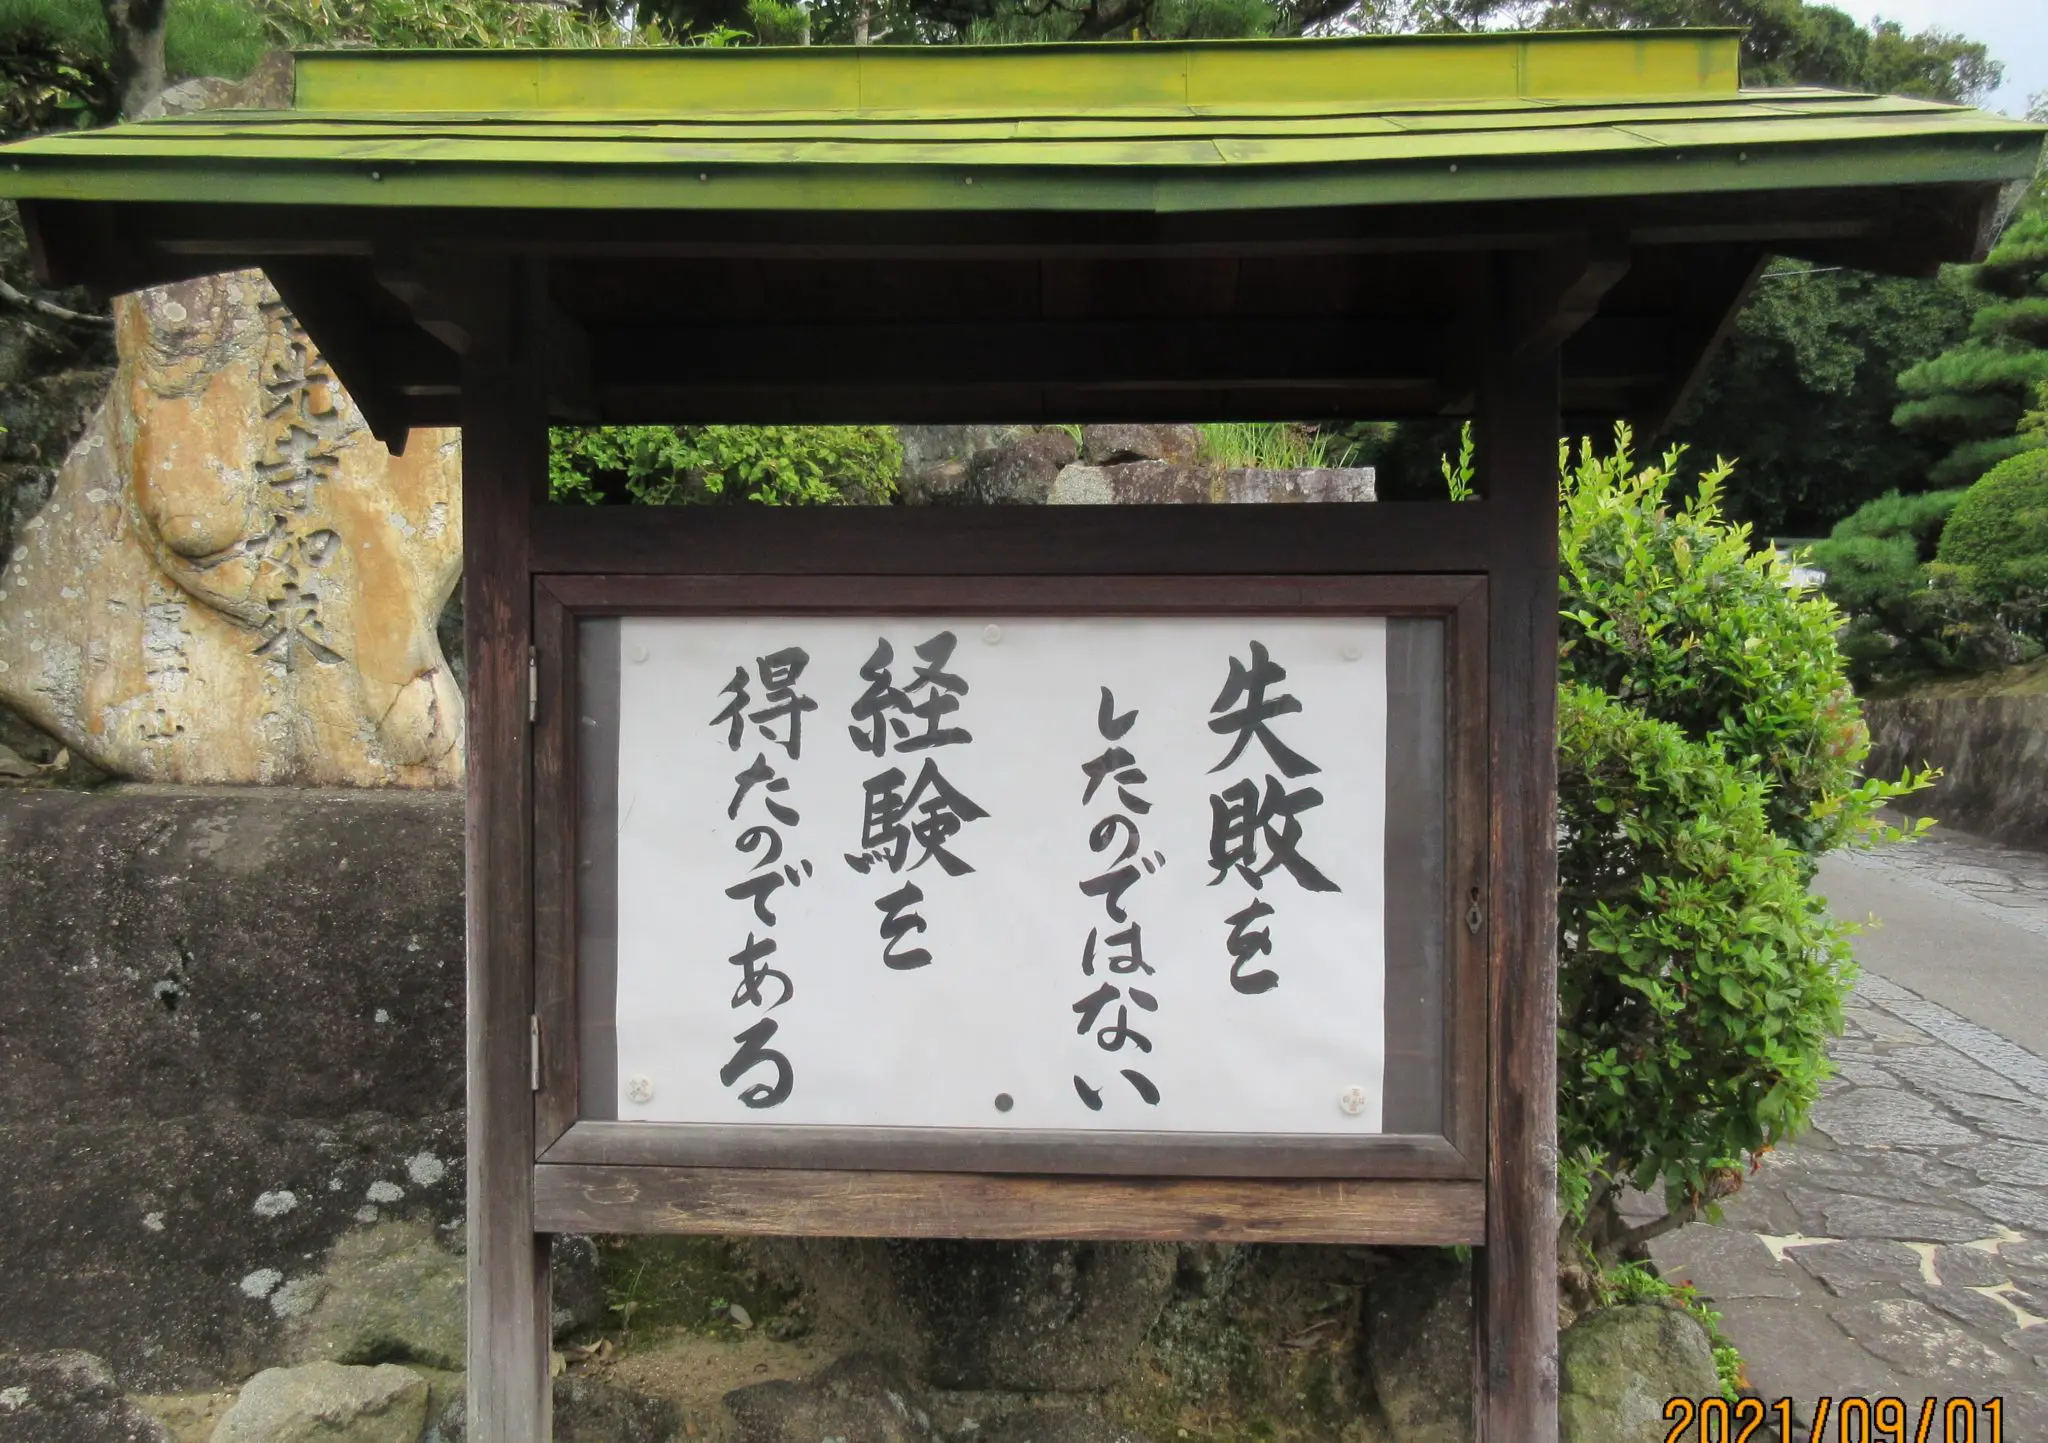 失敗を
したのではない
経験を
得たのである
光寺如来
2021/09/01